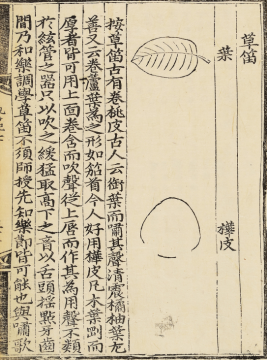 草笛
葉
樺皮
按草笛古有卷桃皮古人云銜葉而嘯其聲清震橘柚葉尤
善又云卷蘆葉爲之形如笳首今人好用樺皮凡木葉勁而
厚者皆可用上面卷含而吹聲從上唇而作其爲用聲不類
於絃管之器只以吹之緩猛取高下之音以舌頭搖點牙齒
間乃和樂調學草笛不須師授先知樂節皆可能也與嘯歌